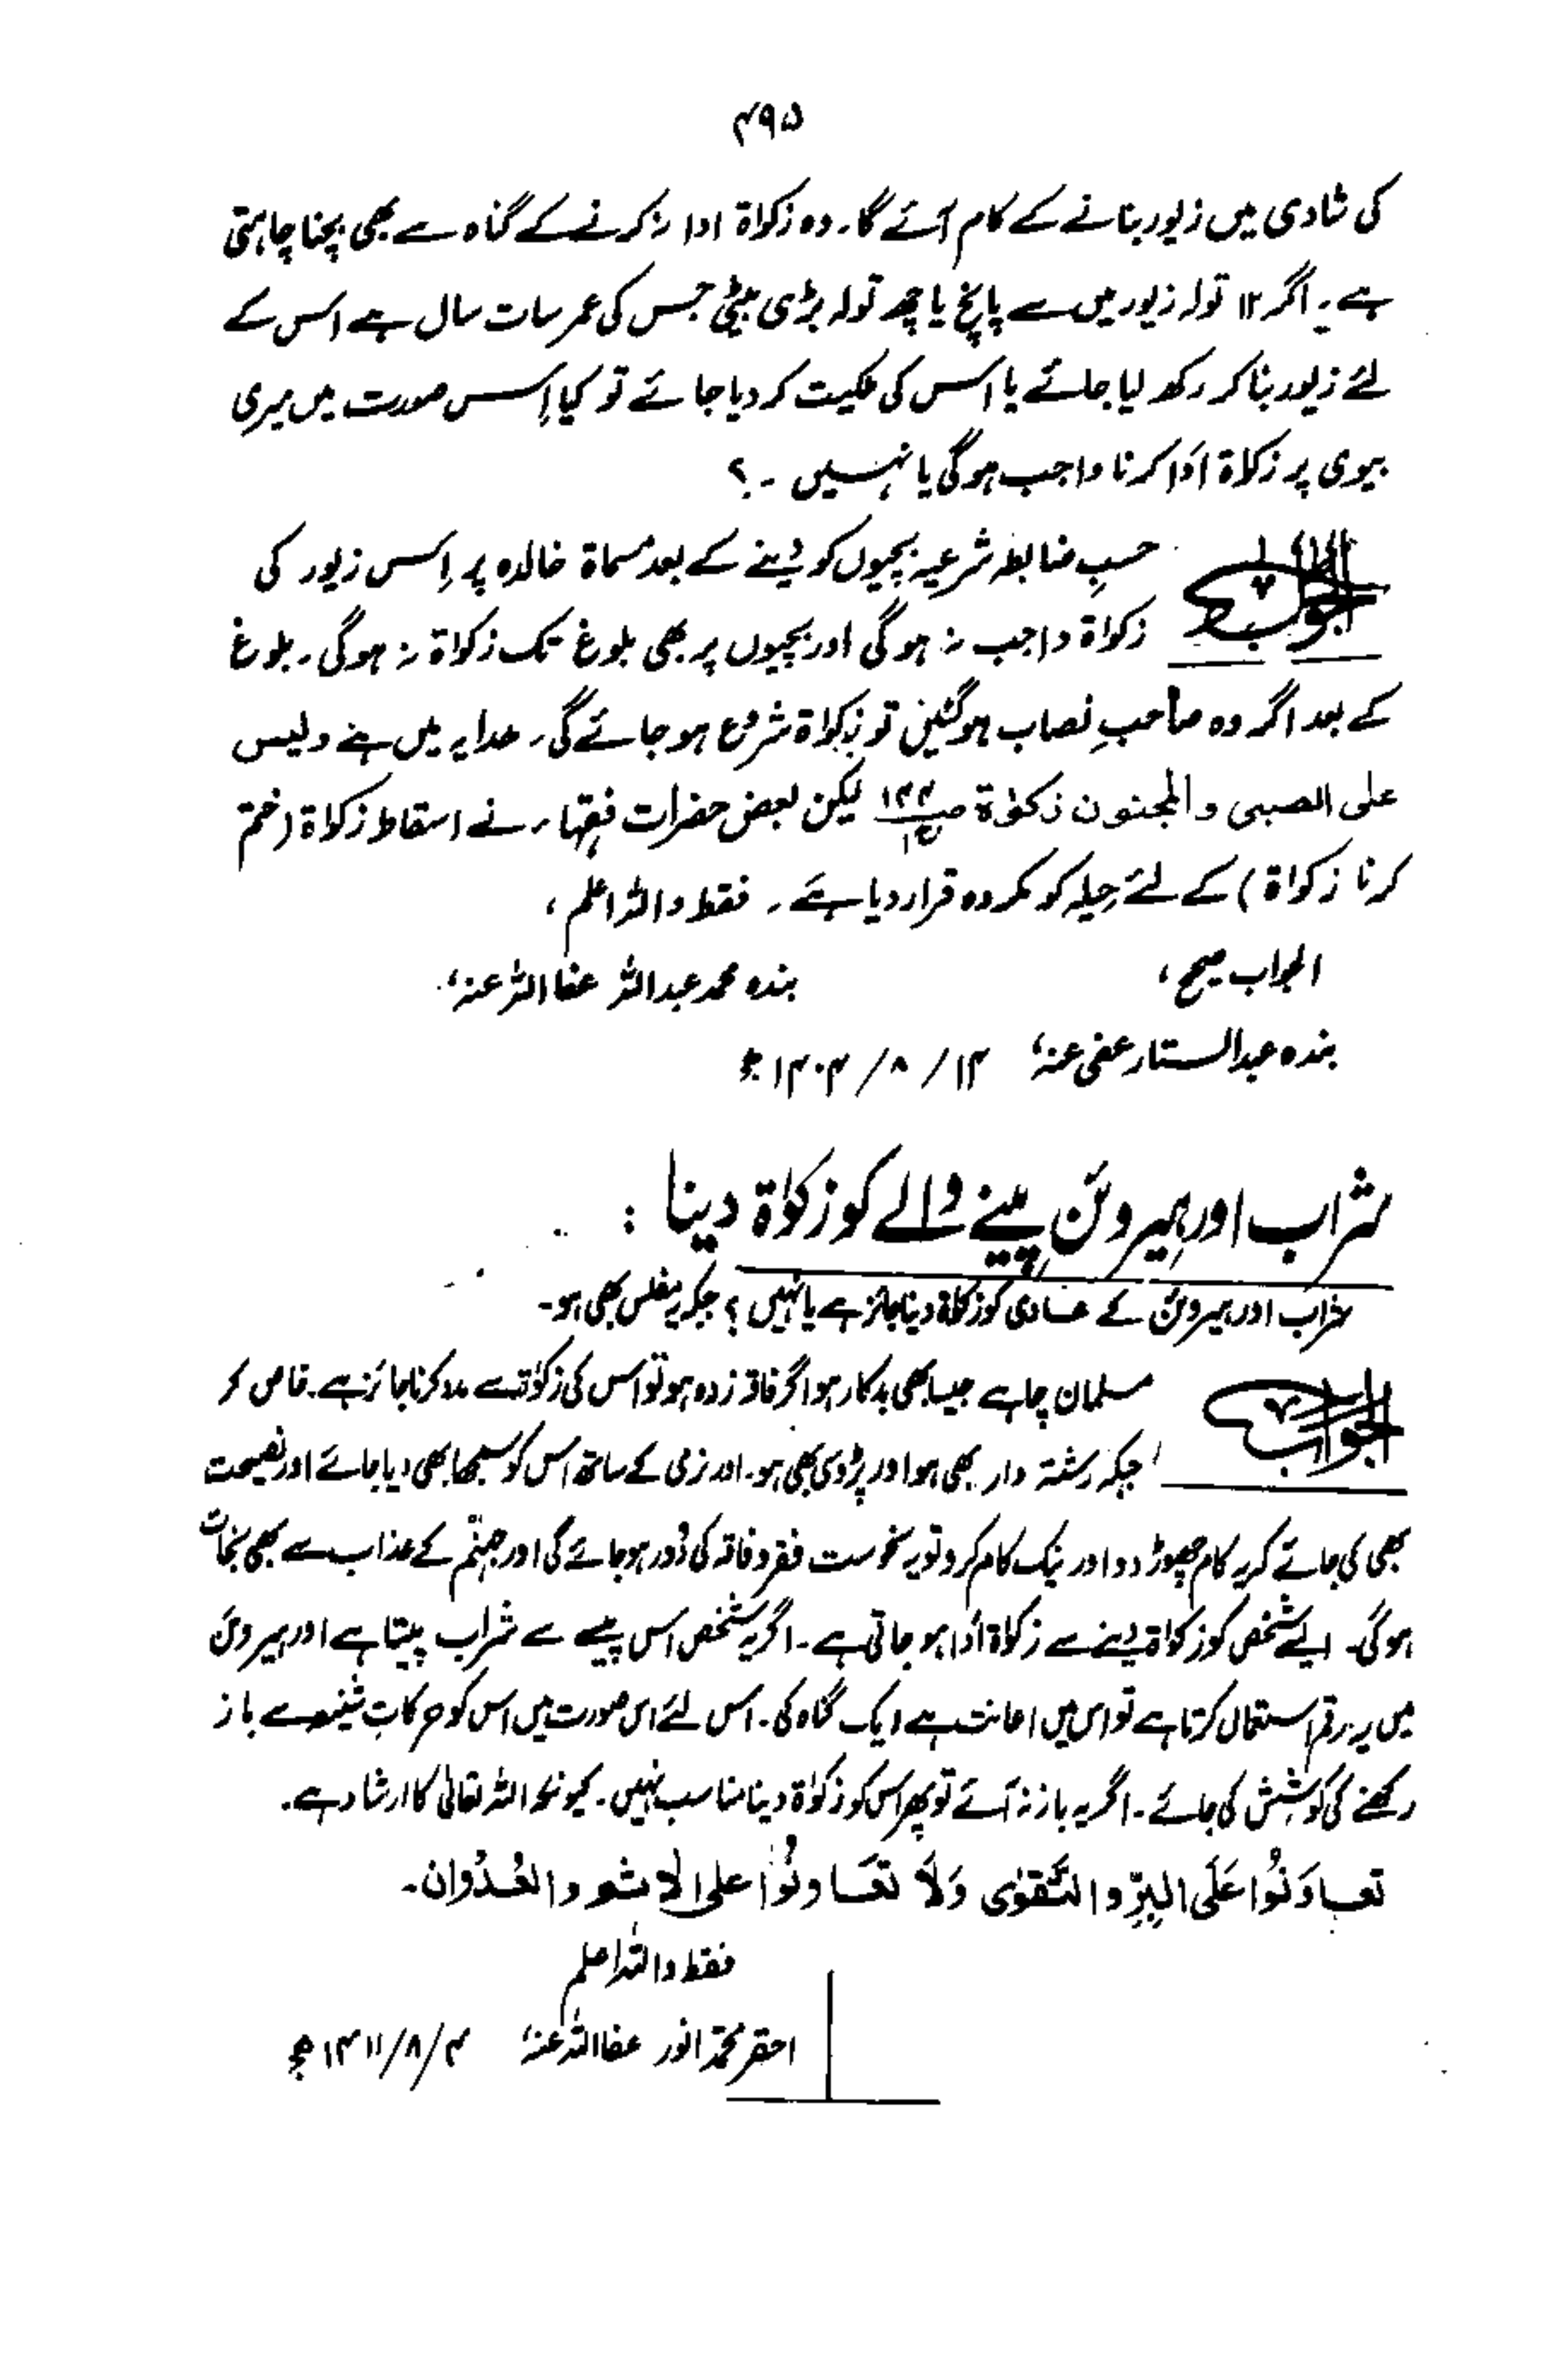 ۴۹۵
کی شادی میں زیور بنانے کے کام آئے گا۔ وہ زکواۃ ادا نہ کرنے کے گناہ سے بھی بچنا چاہتی
ہے۔ اگر ۱۲ تولہ زیور میں سے پانچ یا چھ تولہ بڑی بیٹی جس کی عمر سات سال ہے اس کے
لئے زیور بنا کر رکھ لیا جائے یا اس کی ملکیت کر دیا جائے تو کیا اِس صورت میں میری
بیوی پر زکاۃ ادَا کرنا واجب ہوگی یا نہیں ۔؟
الجواب حسبِ ضابطہ شرعیہ بچیوں کو دینے کے بعد مسماۃ خالدہ پر اِس زیور کی
زکواۃ واجب نہ ہوگی اور بچیوں پر بھی بلوغ تک زکواۃ نہ ہوگی۔ بلوغ
کے بعد اگر وہ صاحبِ نصاب ہوگئیں تو زکواۃ شروع ہو جائے گی۔ ھدایہ میں ہے ولیس
علی الصبی والمجنون زکوٰۃ ص ج۱ لیکن بعض حضرات فقہاء نے اسقاط زکواۃ (ختم
کرنا زکواۃ) کے لئے حِیلہ کو مکروہ قرار دیا ہے ۔ فقط واللہ اعلم،
الجواب صحیح، بندہ محمد عبداللہ عفا اللہ عنہ،
بندہ عبدالستار عفی عنہ، ۱۲/۸/۱۴۰۴ھ
شراب اور ہیروئن پینے والے کو زکوٰۃ دینا :
شراب اور ہیروئن کے عادی کو زکاۃ دینا جائز ہے یا نہیں ؟ جبکہ یہ مفلس بھی ہو۔
الجواب مسلمان چاہے جیسا بھی بدکار ہو اگر فاقہ زدہ ہو تو اس کی زکوٰۃ سے مدد کرنا جائز ہے۔ خاص کر
جبکہ رشتہ دار بھی ہو اور پڑوسی بھی ہو۔ اور نرمی کے ساتھ اس کو سمجھا بھی دیا جائے اور نصیحت
بھی کی جائے کہ یہ کام چھوڑ دو اور نیک کام کرو تو یہ نحوست فقر و فاقہ کی دُور ہو جائے گی اور جہنم کے عذاب سے بھی نجات
ہوگی۔ ایسے شخص کو زکواۃ دینے سے زکواۃ ادَا ہو جاتی ہے۔ اگر یہ شخص اس پیسے سے شراب پیتا ہے اور ہیروئن
میں یہ رقم استعمال کرتا ہے تو اس میں اعانت ہے ایک گناہ کی۔ اس لئے اس صورت میں اس کو حرکاتِ شنیعہ سے باز
رکھنے کی کوشِش کی جائے۔ اگر یہ باز نہ آئے تو پھر اس کو زکوٰۃ دینا مناسب نہیں۔ کیونکہ اللہ تعالیٰ کا ارشاد ہے۔
تعاوَنُوا عَلَی البِرِّ والتَّقوٰی وَلَا تعَاونُوا علی الاثم والعُدُوان۔
فقط واللہ اعلم
احقر محمد انور عفا اللہ عنہ، ۴/۸/۱۴۱۱ھ